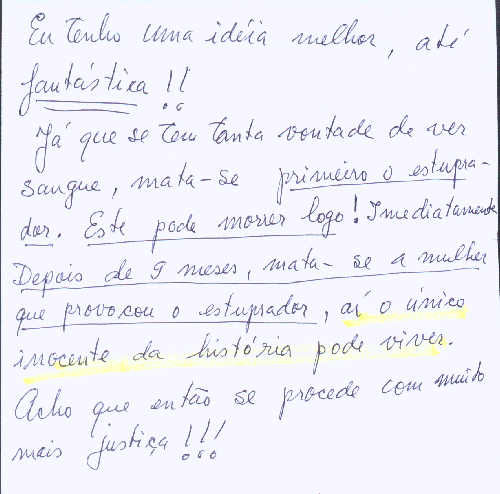 Eu Tenho uma idéia melhor, até
fantástica!!
Já que se tem tanta vontade de ver
sangue, mata-se primeiro o estupra-
dor. Este pode morrer logo! Imediatamente
Depois de 9 meses, mata-se a mulher
que provocou o estuprador, aí o único
inocente da história pode viver.
Acho que então se procede com muito
mais justiça!!!